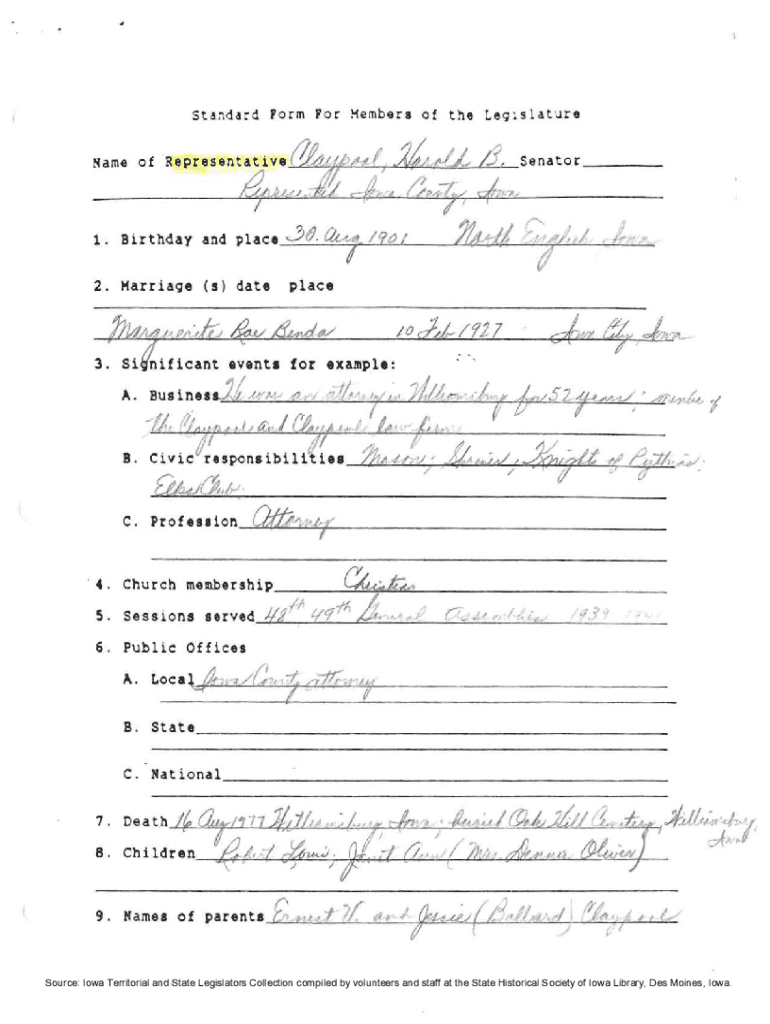 Standard Form For Members of the Legislature
Name of Representative Claypool, Harold B. Senator
Represented Iowa County, Iowa
1. Birthday and place 30 Aug 1901 North English, Iowa
2. Marriage (s) date place
Marguerite Rae Benda 10 Feb 1927 Iowa City, Iowa
3. Significant events for example:
A. Business He was an attorney in Williamsburg for 52 years; member of
the Claypool and Claypool law firm
B. Civic responsibilities Mason; Shriner; Knights of Pythias;
Elks Club.
C. Profession Attorney
4. Church membership Christian
5. Sessions served 48th 49th General Assemblies 1939 1941
6. Public Offices
A. Local Iowa County attorney
B. State
C. National
7. Death 16 Aug 1977 Williamsburg, Iowa; buried Oak Hill Cemetery, Williamsburg,
Iowa
8. Children Robert Louis; Janet Ann (Mrs. Oliver)
9. Names of parents Ernest W. and Jessie (Ballard) Claypool
Source: Iowa Territorial and State Legislators Collection compiled by volunteers and staff at the State Historical Society of Iowa Library, Des Moines, Iowa.